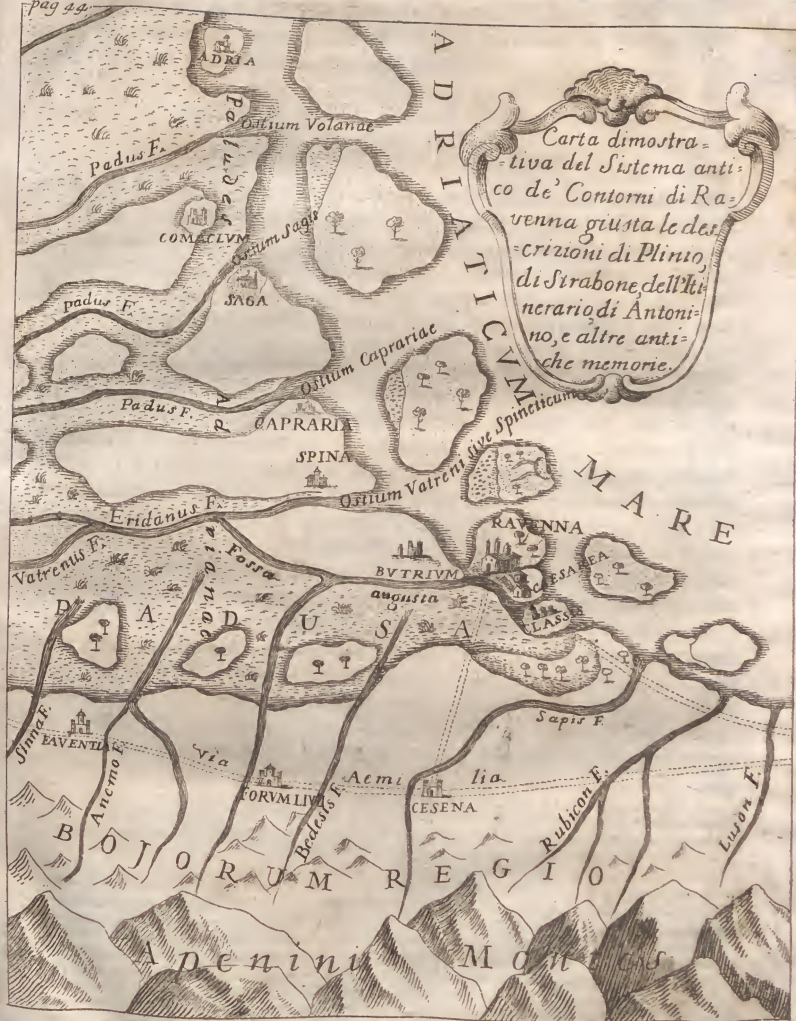 pag 44.
ADRIA
ADRIATICVM
MARE
Carta dimostra=
=tiva del Sistema anti=
co de' Contorni di Ra=
venna giusta le des=
=crizioni di Plinio,
di Strabone, dell'Iti=
nerario, di Antoni=
no, e altre anti=
che memorie.
Paludes
Ostium Volanae
Padus F.
COMACLVM
Ostium Sagis
SAGA
padus F.
Ostium Caprariae
Padus F.
Ad
CAPRARIA
SPINA
Ostium Vatreni sive Spineticum
Eridanus F.
RAVENNA
Vatrenus F.
Fossa
augusta
rianae
BVTRIVM
CAESAREA
CLASSIS
PADUSA
Sapis F.
Sinna F.
FAVENTIA
Anemo F.
Via Aemilia
FORVM LIVI
Bedesis F.
CESENA
Rubicon F.
Luson F.
BOJORUM REGIO
Apenini Montes